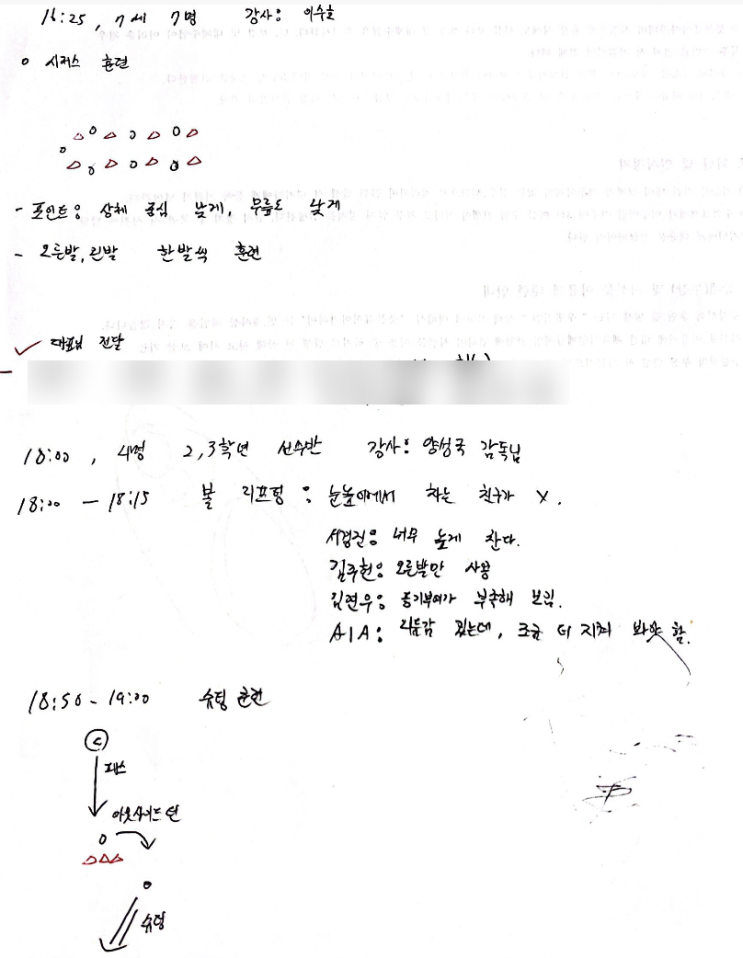 16:25, 7세 7명 강사: 이수호
o 시저스 훈련
- 포인트: 상체 중심 낮게, 무릎도 낮게
- 오른발, 왼발 한발씩 훈련
✓ 대표님 전달
18:00, 4명 2,3학년 선수반 강사: 양성국 감독님
18:00 - 18:15 볼 리프팅: 눈높이에서 차는 친구가 X.
서경진: 너무 높게 찬다.
김주헌: 오른발만 사용
김연우: 동기부여가 부족해 보임.
AIA: 리듬감 있는데, 조금 더 지켜 봐야 함.
18:50 - 19:00 슈팅 훈련
C
패스
아웃사이드 턴
슈팅